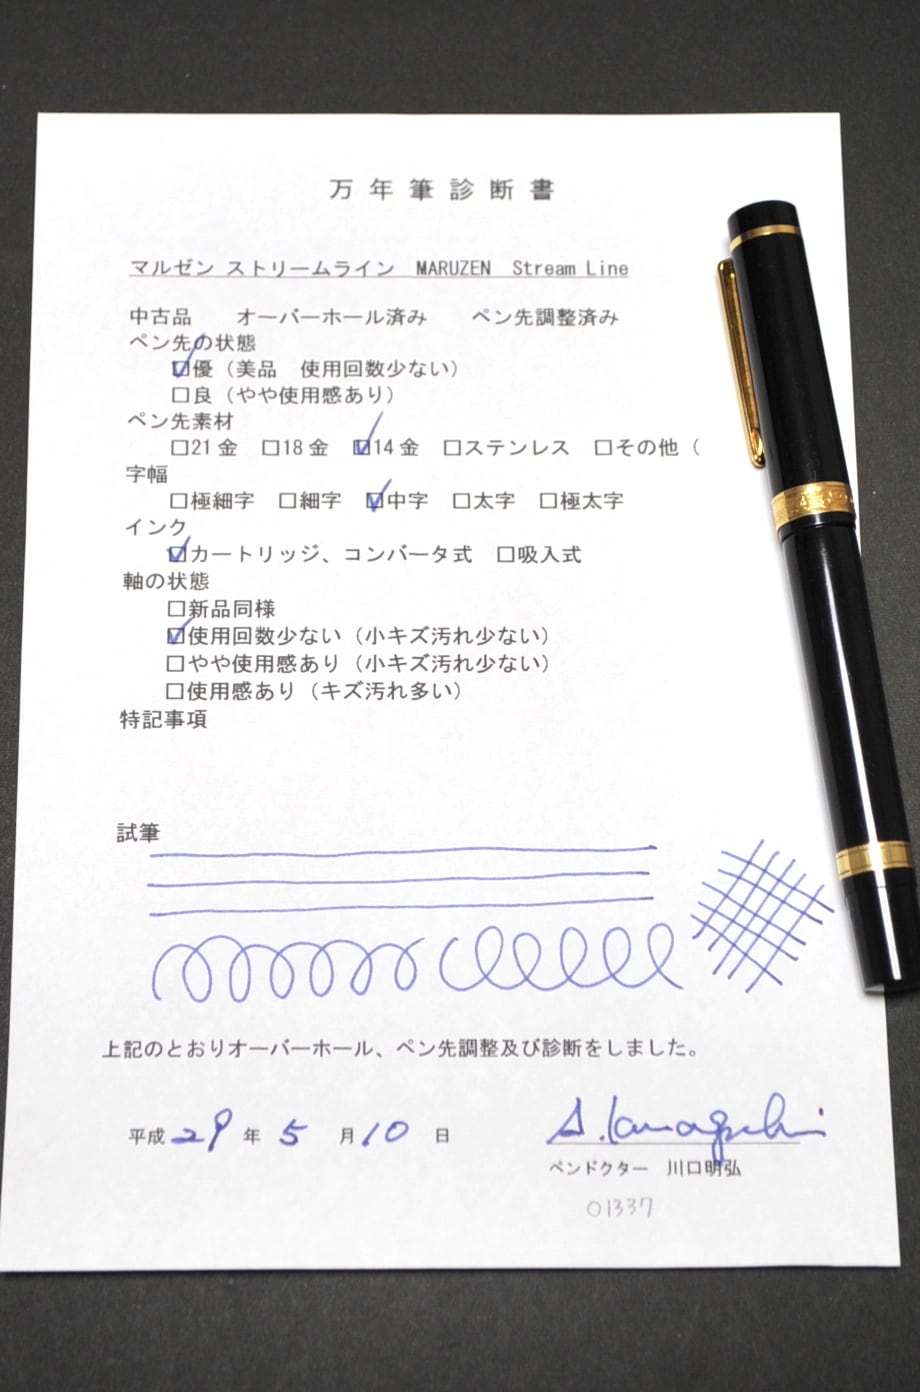 万年筆診断書
マルゼン ストリームライン　MARUZEN　Stream Line
中古品　　オーバーホール済み　　ペン先調整済み
ペン先の状態
☑優（美品　使用回数少ない）
□良（やや使用感あり）
ペン先素材
□21金　□18金　☑14金　□ステンレス　□その他（
字幅
□極細字　□細字　☑中字　□太字　□極太字
インク
☑カートリッジ、コンバータ式　□吸入式
軸の状態
□新品同様
☑使用回数少ない（小キズ汚れ少ない）
□やや使用感あり（小キズ汚れ少ない）
□使用感あり（キズ汚れ多い）
特記事項
試筆
上記のとおりオーバーホール、ペン先調整及び診断をしました。
平成29年5月10日
ペンドクター　川口明弘
01337